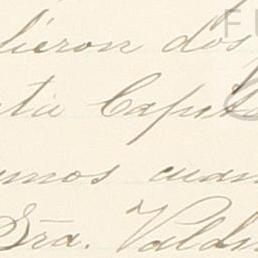 lieron dos
Capata
mos cuan
Sra. Valdi